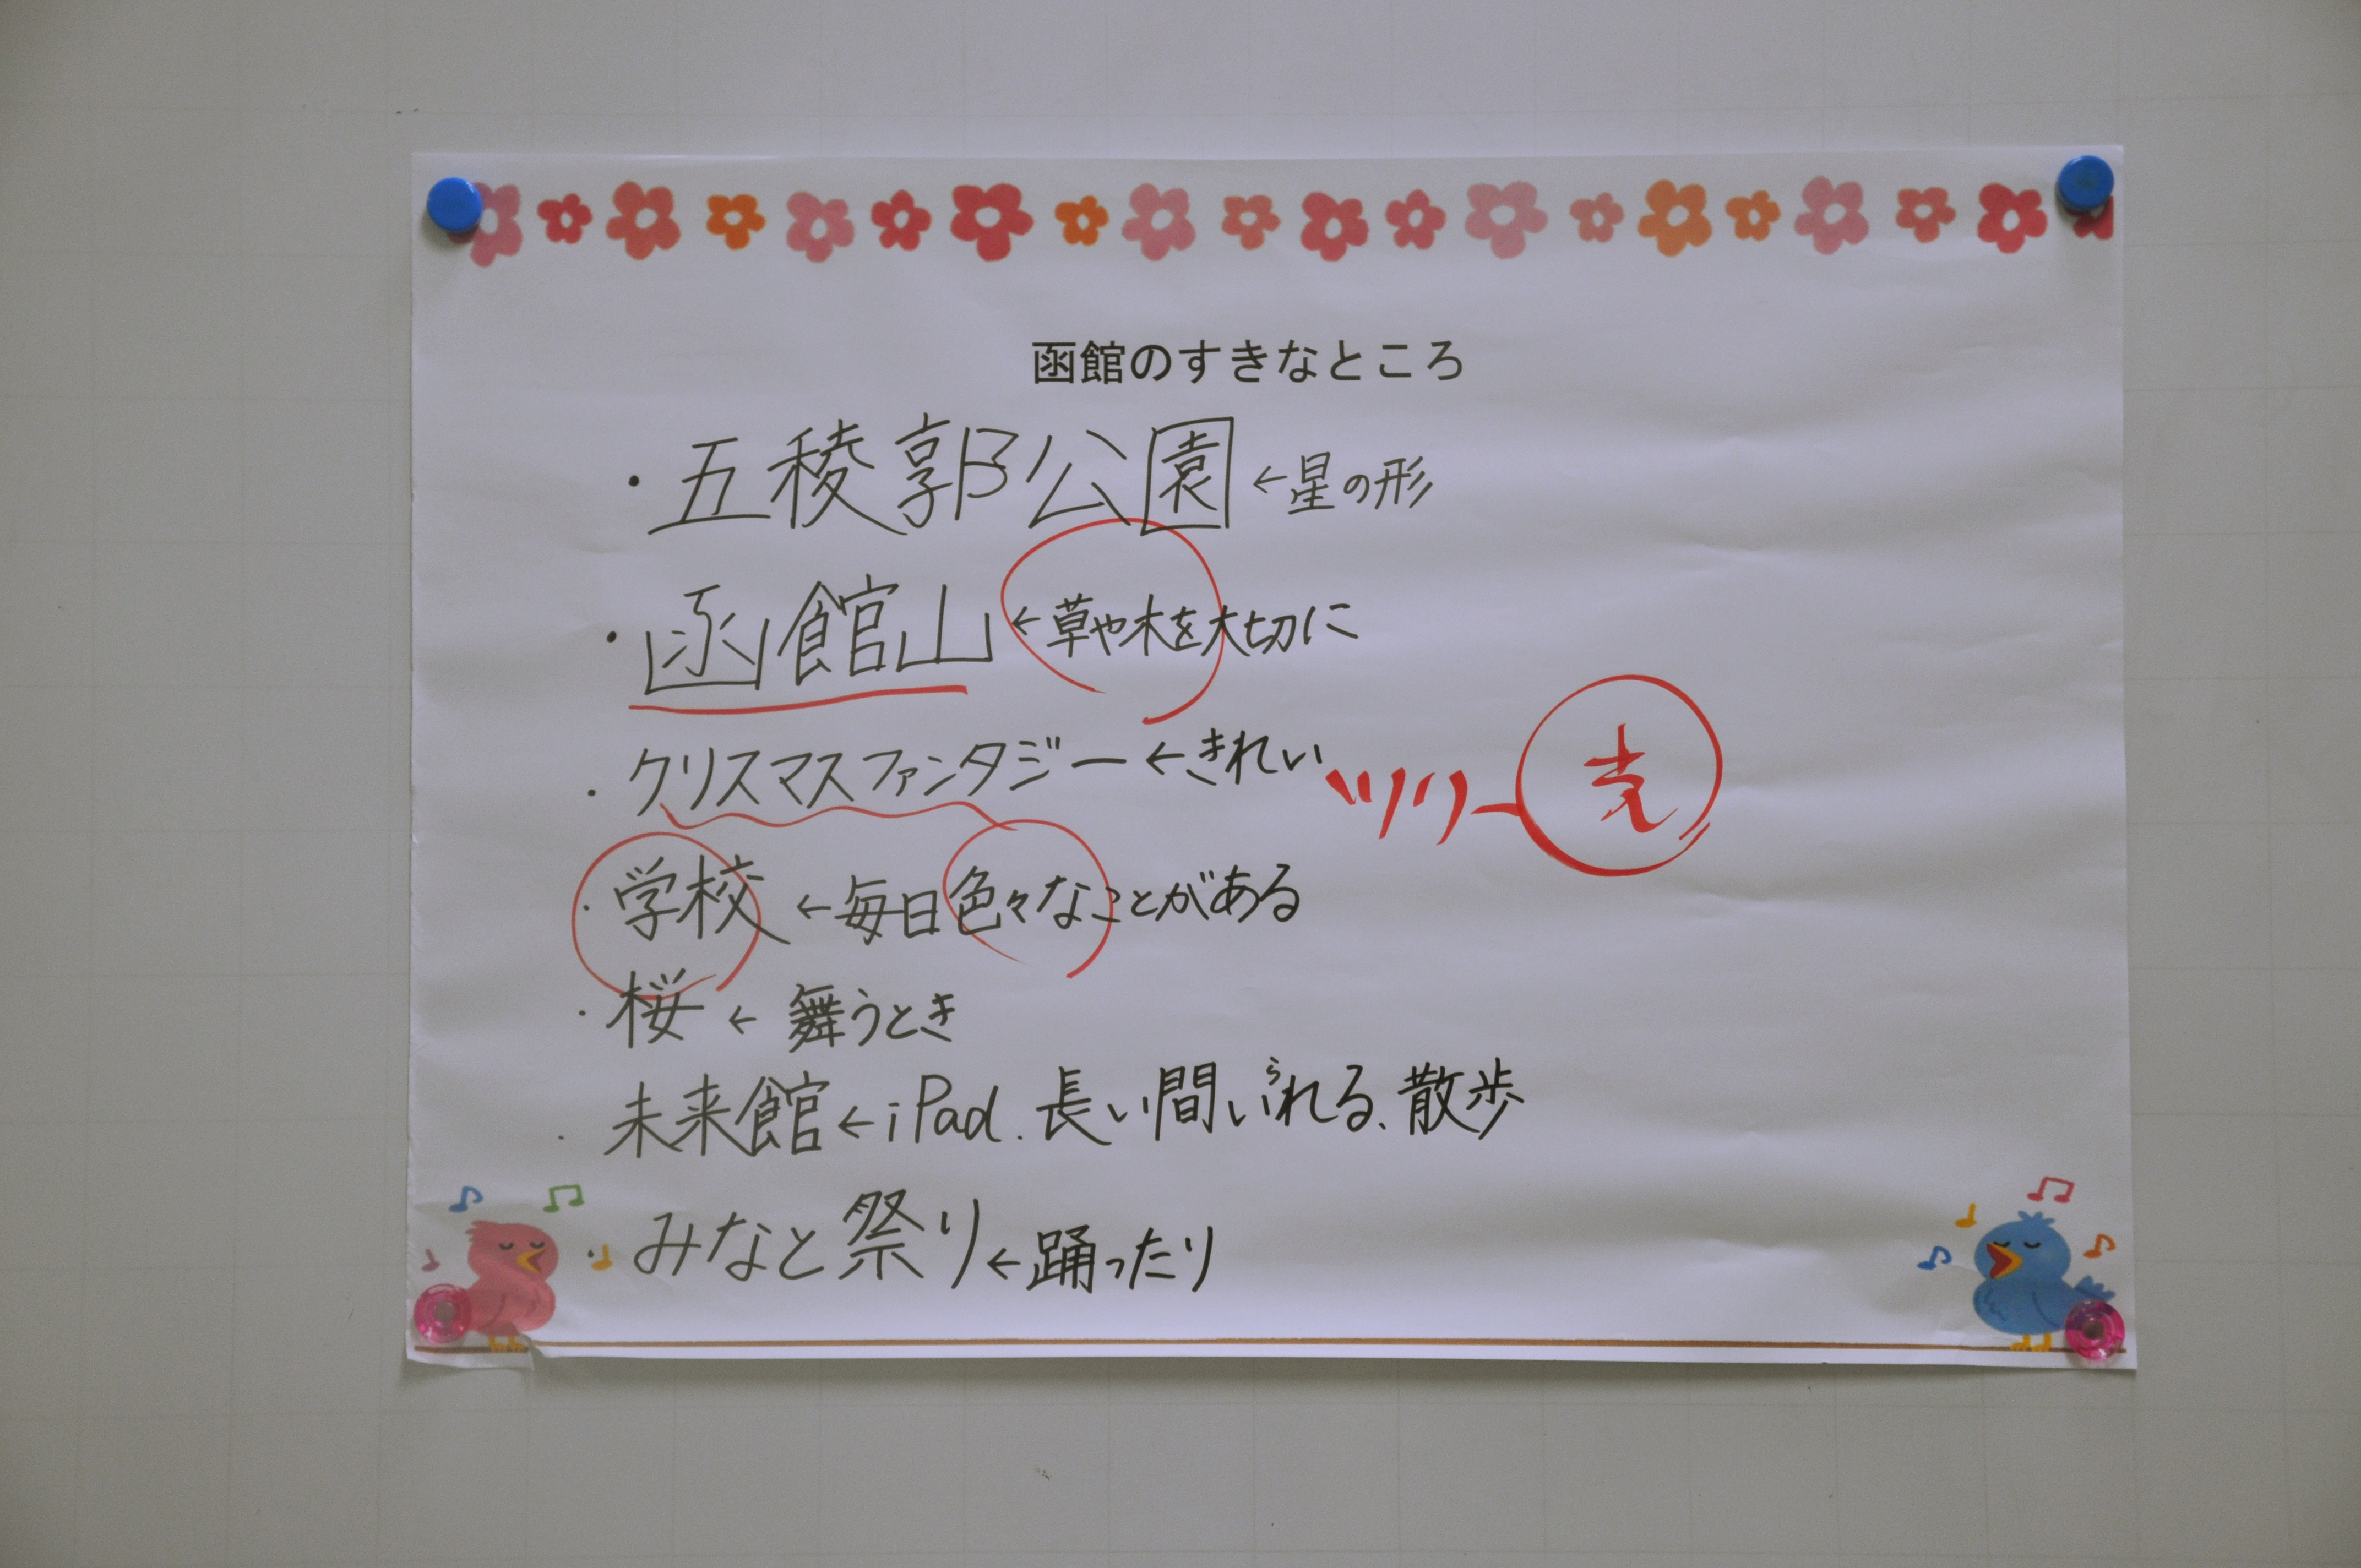 函館のすきなところ
・五稜郭公園←星の形
・函館山←草や木を大切に
・クリスマスファンタジー←きれい ツリー
・学校←毎日色々なことがある
・桜←舞うとき
・未来館←iPad.長い間いられる、散歩
・みなと祭り←踊ったり